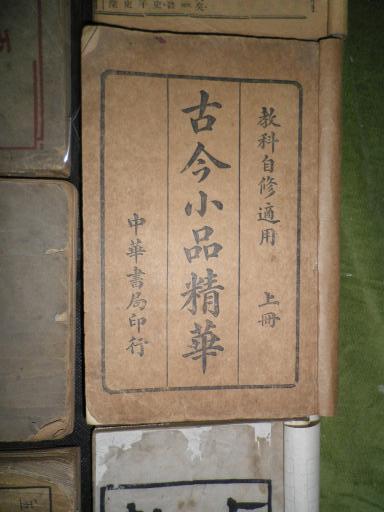 教科自修適用 上冊
古今小品精華
中華書局印行